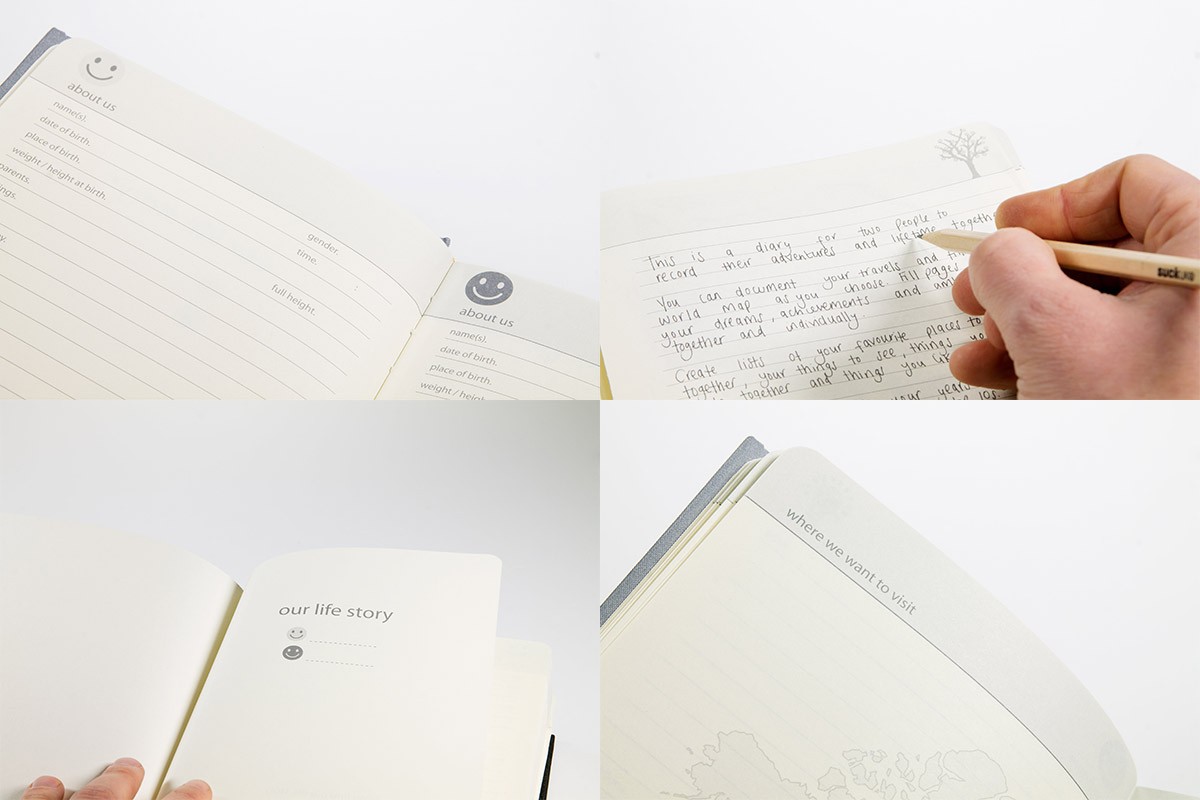 about us
name(s).
date of birth.
place of birth.
weight / height at birth.
parents.
gender.
time.
full height.
about us
name(s).
date of birth.
place of birth.
weight / height
This is a diary for two people to
record their adventures and lifetime together
You can document your travels and
world map as you choose. Fill pages
your dreams, achievements and
together and individually.
Create lists of your favourite places to
together, your things to see, things
together and things you
your years
suck
our life story
where we want to visit